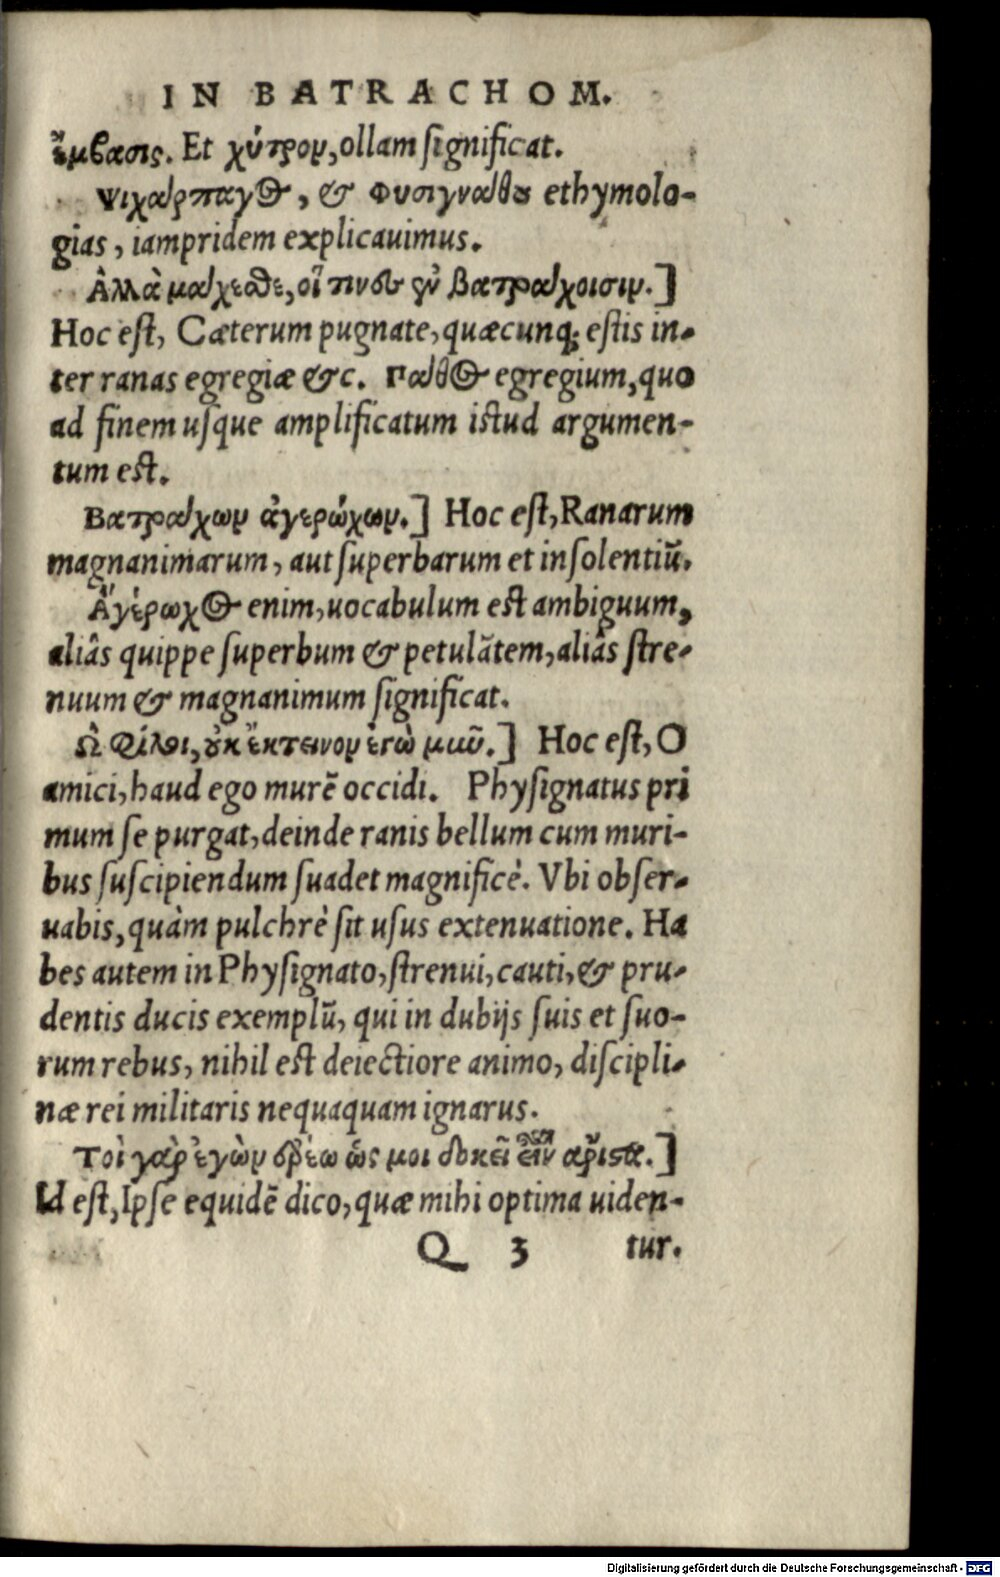 IN BATRACHOM.
ἔμβασις. Et χύτρον, ollam significat.
Ψιχάρπαγος, & Φυσιγνάθου ethymolo-
gias, iampridem explicauimus.
Ἀλλὰ μάχεσθε, οἵ τινες ἐν βατράχοισιν.]
Hoc est, Cæterum pugnate, quæcunq; estis in-
ter ranas egregiæ &c. Πάθος egregium, quo
ad finem usque amplificatum istud argumen-
tum est.
Βατράχων ἀγερώχων.] Hoc est, Ranarum
magnanimarum, aut superbarum et insolentiũ.
Ἀγέρωχος enim, uocabulum est ambiguum,
aliâs quippe superbum & petulãtem, aliâs stre-
nuum & magnanimum significat.
Ὦ φίλοι, οὐκ ἔκτεινον ἐγὼ μῦν.] Hoc est, O
amici, haud ego murẽ occidi. Physignatus pri
mum se purgat, deinde ranis bellum cum muri-
bus suscipiendum suadet magnificè. Vbi obser-
uabis, quàm pulchrè sit usus extenuatione. Ha
bes autem in Physignato, strenui, cauti, & pru-
dentis ducis exemplũ, qui in dubijs suis et suo-
rum rebus, nihil est deiectiore animo, discipli-
næ rei militaris nequaquam ignarus.
Τοὶ γὰρ ἐγὼν ἐρέω ὥς μοι δοκεῖ εἶν ἄριστα.]
Id est, Ipse equidẽ dico, quæ mihi optima uiden-
Q 3 tur.
Digitalisierung gefördert durch die Deutsche Forschungsgemeinschaft - DFG